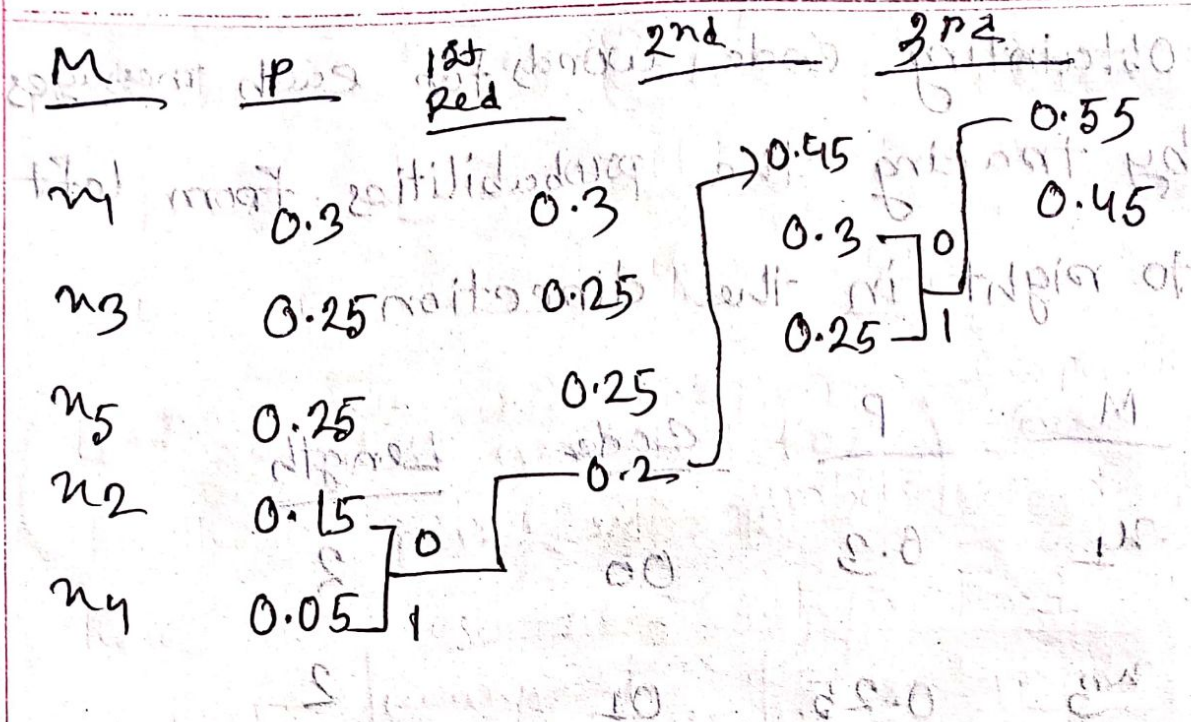 M P 1st Red 2nd 3rd
x1 0.3 0.3 0.45 0.55
x3 0.25 0.25 0.3 0 0.45
x5 0.25 0.25 0.25 1
x2 0.15 0 0.2
x4 0.05 1